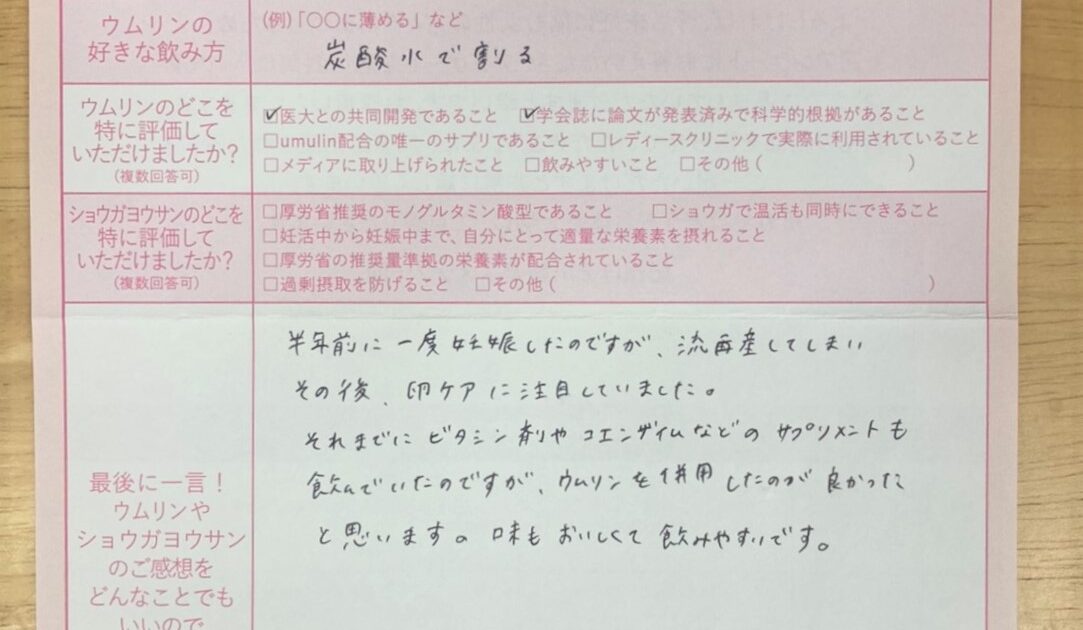 ウムリンの
好きな飲み方
(例)「〇〇に薄める」など
炭酸水で割る
ウムリンのどこを
特に評価して
いただけましたか?
(複数回答可)
☑医大との共同開発であること ☑学会誌に論文が発表済みで科学的根拠があること
□umulin配合の唯一のサプリであること □レディースクリニックで実際に利用されていること
□メディアに取り上げられたこと □飲みやすいこと □その他( )
ショウガヨウサンのどこを
特に評価して
いただけましたか?
(複数回答可)
□厚労省推奨のモノグルタミン酸型であること □ショウガで温活も同時にできること
□妊活中から妊娠中まで、自分にとって適量な栄養素を摂れること
□厚労省の推奨量準拠の栄養素が配合されていること
□過剰摂取を防げること □その他( )
最後に一言!
ウムリンや
ショウガヨウサン
のご感想を
どんなことでも
いいので
半年前に一度妊娠したのですが、流産してしまい
その後、卵ケアに注目していました。
それまでにビタミン剤やコエンザイムなどのサプリメントも
飲んでいたのですが、ウムリンを併用したのが良かった
と思います。味もおいしくて飲みやすいです。